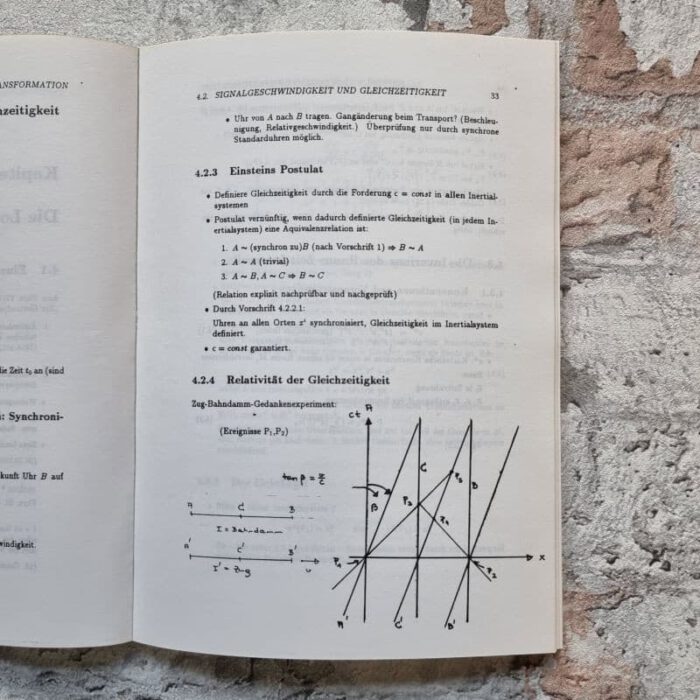 ANSFORMATION
hzeitigkeit
die Zeit t₀ an (sind
n: Synchroni-
kunft Uhr B auf
windigkeit.
4.2. SIGNALGESCHWINDIGKEIT UND GLEICHZEITIGKEIT 33
• Uhr von A nach B tragen. Gangänderung beim Transport? (Beschleu-
nigung, Relativgeschwindigkeit.) Überprüfung nur durch synchrone
Standarduhren möglich.
4.2.3 Einsteins Postulat
• Definiere Gleichzeitigkeit durch die Forderung c = const in allen Inertial-
systemen
• Postulat vernünftig, wenn dadurch definierte Gleichzeitigkeit (in jedem In-
ertialsystem) eine Äquivalenzrelation ist:
1. A ~ (synchron zu)B (nach Vorschrift 1) ⇒ B ~ A
2. A ~ A (trivial)
3. A ~ B, A ~ C ⇒ B ~ C
(Relation explizit nachprüfbar und nachgeprüft)
• Durch Vorschrift 4.2.2.1:
Uhren an allen Orten xⁱ synchronisiert, Gleichzeitigkeit im Inertialsystem
definiert.
• c = const garantiert.
4.2.4 Relativität der Gleichzeitigkeit
Zug-Bahndamm-Gedankenexperiment:
(Ereignisse P₁,P₂)
A
ct
C
P₅
tan β = v/c
B
β
P₃
A C B
P₄
I = Bahndamm
A' C' B'
I' = Zug
v
P₁
x
P₂
A' C' B'